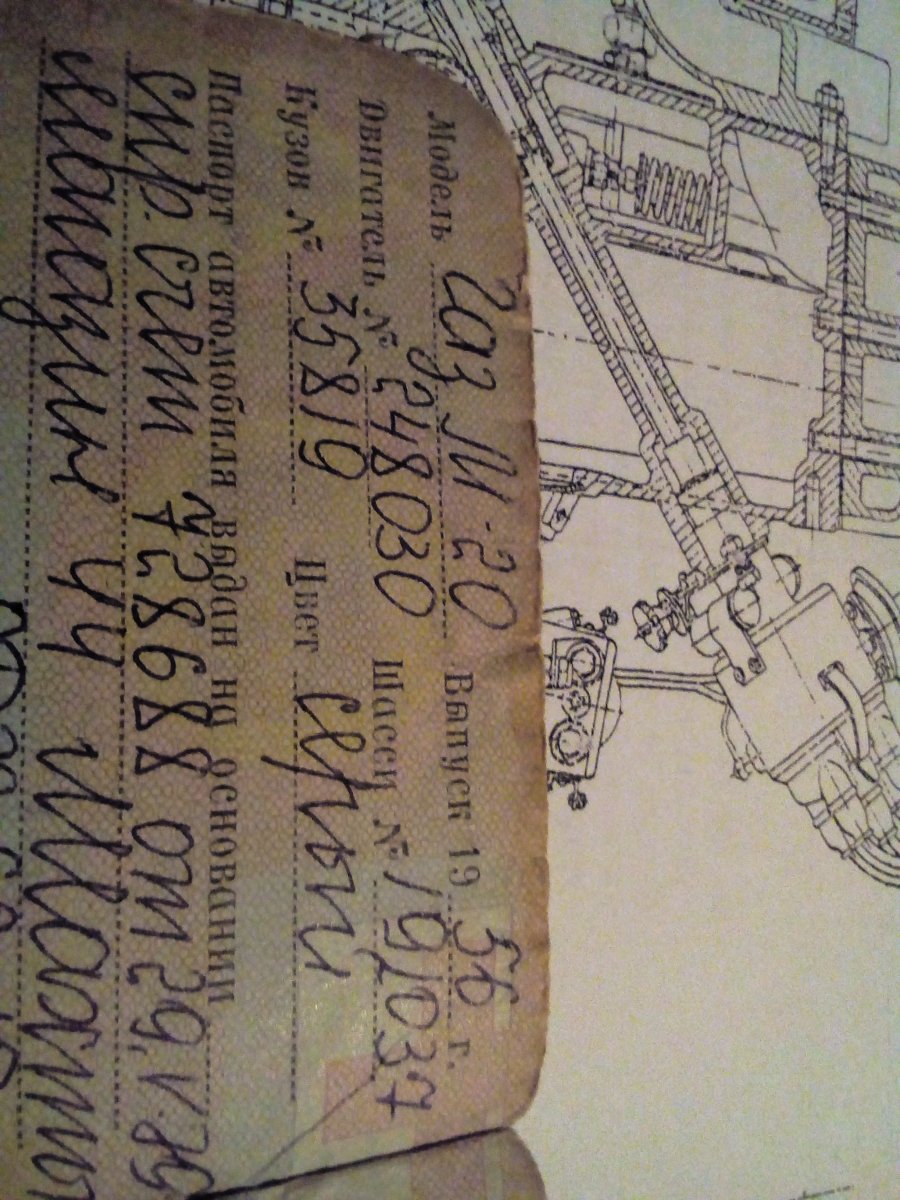 Модель Газ М-20 Выпуск 19 56 г.
Двигатель № 248030 Шасси № 191037
Кузов № 35819 Цвет серый
Паспорт автомобиля выдан на основании
спр. счет 728688 от 29.V.79
магазин